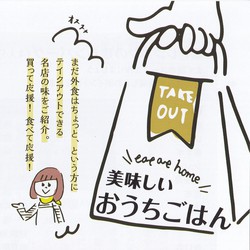 まだ外食はちょっと、という方に
テイクアウトできる
名店の味をご紹介。
買って応援！食べて応援！
TAKE
OUT
eat at home
美味しい
おうちごはん